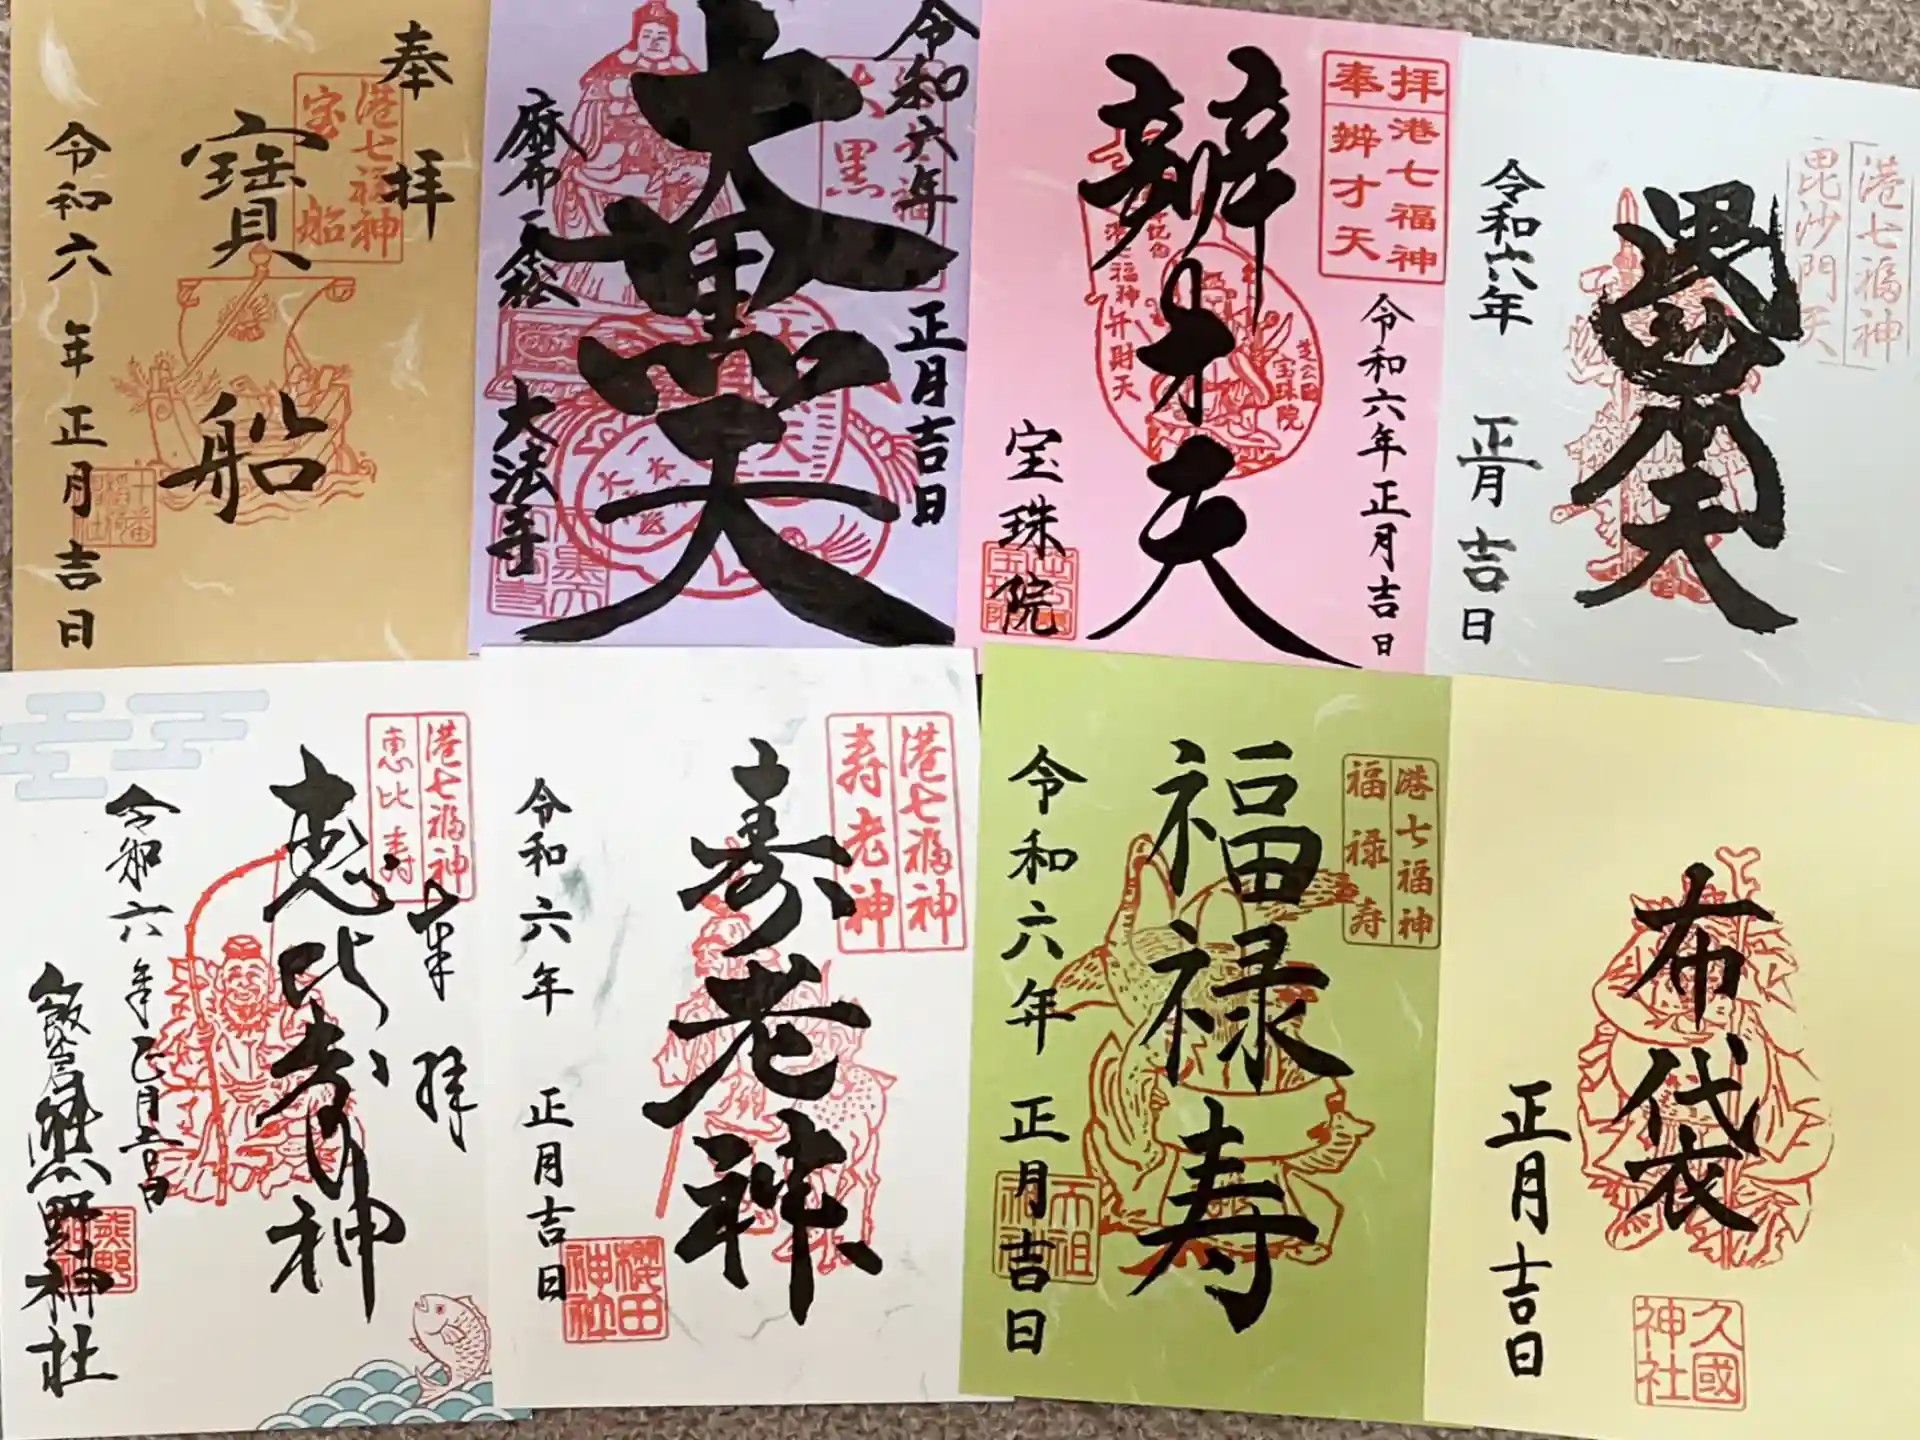 奉拝
港七福神
宝船
寶船
令和六年正月吉日
令和六年正月吉日
大黒天
麻布一本松
大法寺
奉拝
港七福神
辨才天
辨才天
令和六年正月吉日
宝珠院
港七福神
弁財天
芝公園
宝珠院
港七福神
毘沙門天
毘沙門天
令和六年
正月吉日
港七福神
恵比寿
奉拝
恵比寿神
令和六年正月吉日
飯倉熊野神社
港七福神
寿老神
寿老神
令和六年
正月吉日
櫻田
神社
港七福神
福禄寿
福禄寿
令和六年正月吉日
布袋
正月吉日
久國
神社